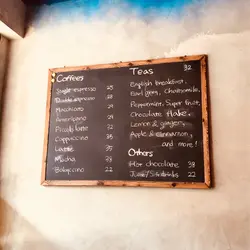 Coffees
Single espresso 25
Double espresso
Macchiato
Americano
Piccolo latte
Cappuccino 35
Latte
Mocha
Babyccino 22
Teas 32
English breakfast,
Earl grey, Chamomile,
Peppermint, Super fruit,
Chocolate flake,
Lemon & ginger,
Apple & cinnamon,
and more!
Others
Hot chocolate 38
22